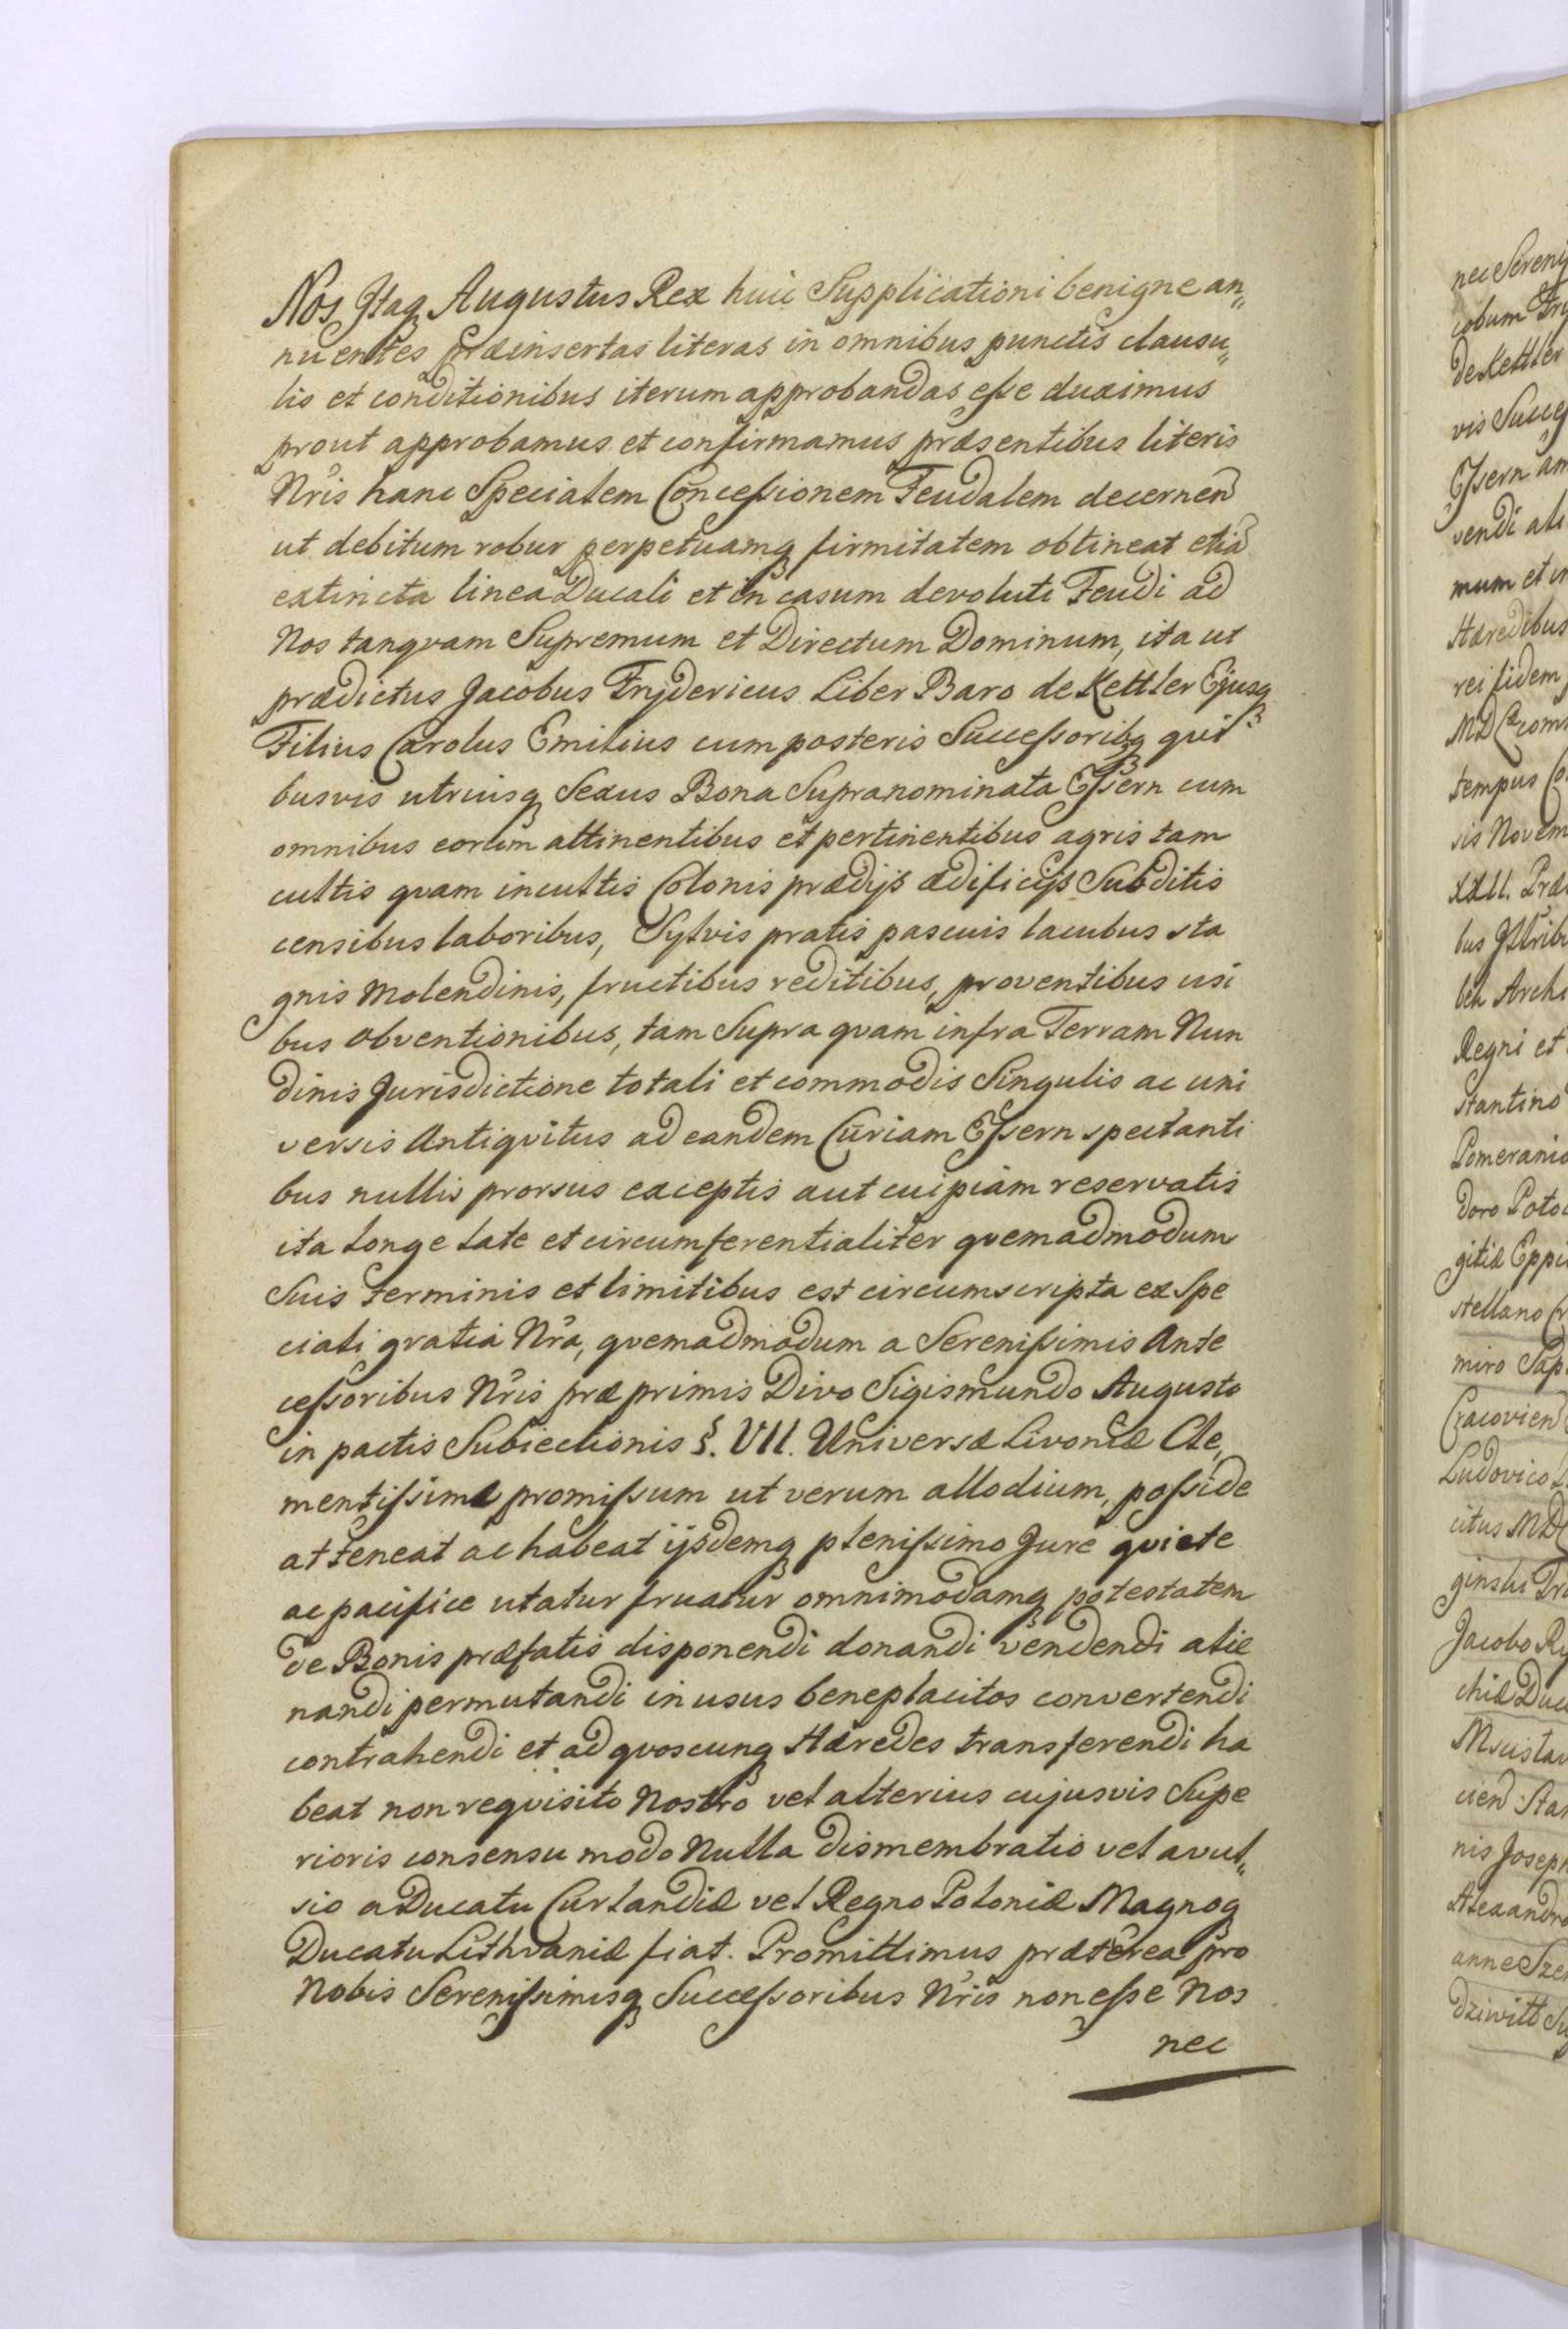 Nos Itaq Augustus Rex huic Supplicationi benigne an„
nuentes præinsertas literas in omnibus punctis clausu„
lis et conditionibus iterum approbandas eſse duximus
prout approbamus et confirmamus præsentibus literis
Nr̃is hanc Specialem Conceſsionem Feudalem decernen̄
ut debitum robur perpetuamq firmitatem obtineat etiã
extincta linea Ducali et in casum devoluti Feudi ad
Nos tanqvam Supremum et Directum Dominum, ita ut
prædictus Jacobus Frydericus Liber Baro de Kettler Ejusq
Filius Carolus Emilius cum posteris Succeſsoribq qvi
busvis utriusq Sexus Bona Supranominata Eſsern cum
omnibus eorum attinentibus et pertinentibus agris tam
cultis qvam incultis Colonis prædijs ædificijs Subditis
censibus laboribus, Sylvis pratis pascuis lacubus sta
gnis Molendinis, fructibus reditibus, proventibus usi
bus obventionibus, tam Supra qvam infra Terram Nun
dinis Jurisdictione totali et commodis Singulis ac uni
versis Antiqvitus ad eandem Curiam Eſsern spectanti
bus nullis prorsus exceptis aut cuipiam reservatis
ita longe late et circumferentialiter qvemadmodum
Suis terminis et limitibus est circumscripta ex Spe
ciali gratia Nr̃a, qvemadmodum a Sereniſsimis Ante
ceſsoribus Nr̃is præ primis Divo Sigismundo Augusto
in pactis Subiectionis §. VII. Universæ Livoniæ Cle„
mentiſsimæ promiſsum ut verum allodium, poſside
at teneat ac habeat ijsdemq pleniſsimo Jure qviete
ac pacifice utatur fruatur omnimodamq potestatem
de Bonis præfatis disponendi donandi vendendi alie
nandi permutandi in usus beneplacitos convertendi
contrahendi et ad qvoscunq Hæredes transferendi ha
beat non reqvisito Nostro vel alterius cujusvis Supe
rioris consensu modo Nulla dismembratio vel avul„
sio a Ducatu Curlandiæ vel Regno Poloniæ Magnoq
Ducatu Lithvaniæ fiat. Promittimus præterea pro
Nobis Sereniſsimisq Succeſsoribus Nr̃is non eſse Nos
nec
nec Sereni
cobum Fry
de Kettler
vis Succ
Eſsern
vendi ali
mum et
Hæredibus
rei fidem
tempus
sis Novem
XXII. Præ
Regni et
stantino
Pomerania
doro Poto
stellano
miro Sap
Cracovien̄
Ludovico
ginski
Jacobo Ry
chiæ Duc
nis Joseph
Alexandro
anne Sze